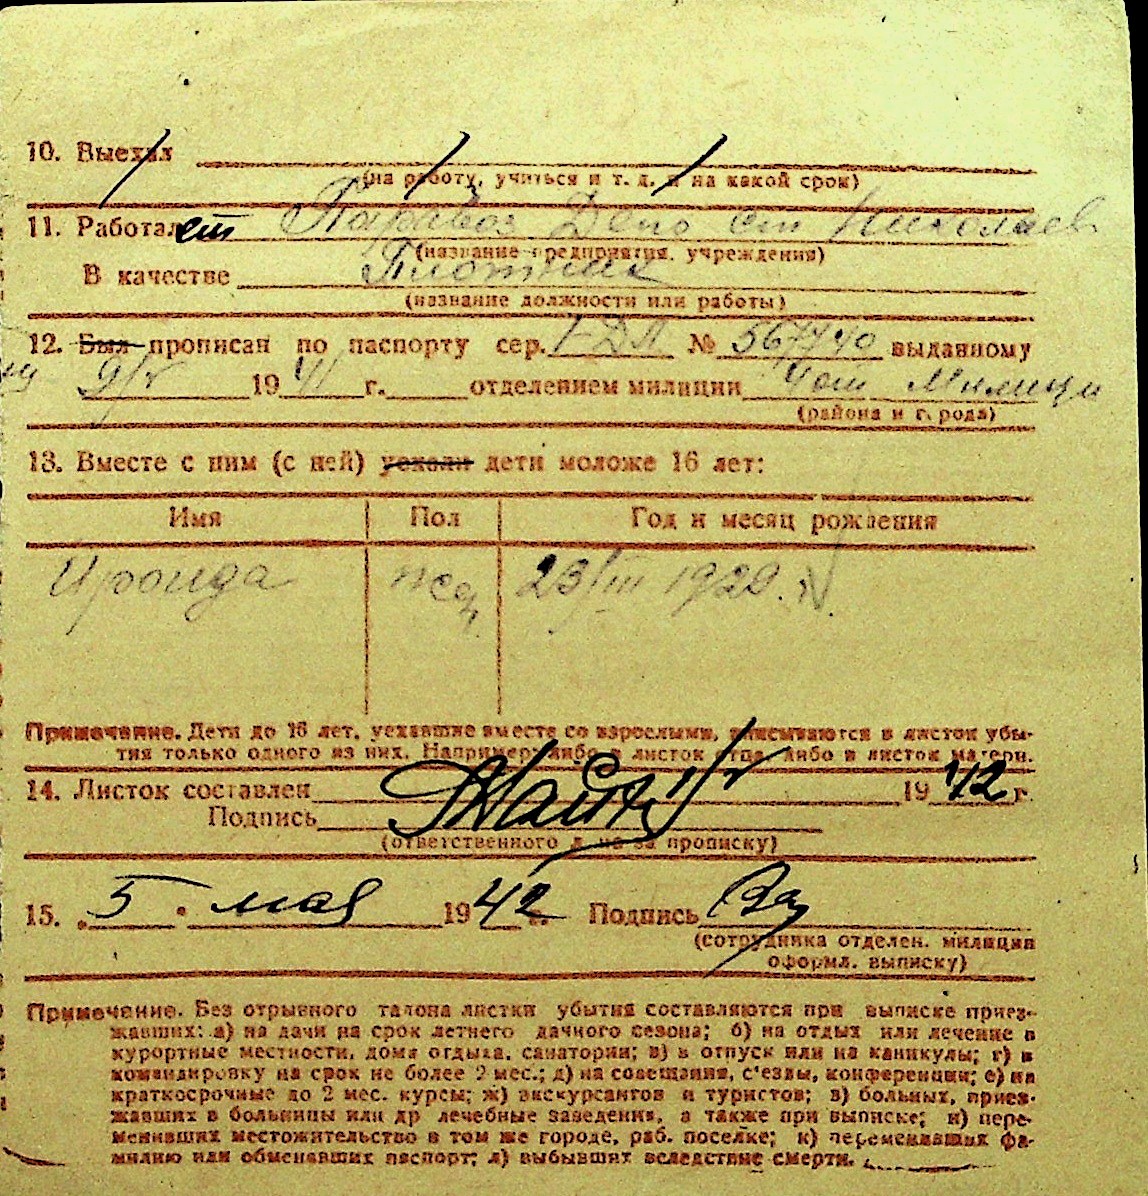 10. Выехал
(на работу, учиться и т. д. и на какой срок)
11. Работает Паравоз Депо ст Николаев
(название предприятия, учреждения)
В качестве Плотник
(название должности или работы)
12. Был прописан по паспорту сер. I-ДЛ № 567740 выданному
9/V 1941 г. отделением милиции 4 от Милици
(района и города)
13. Вместе с ним (с ней) уехали дети моложе 16 лет:
Имя Пол Год и месяц рождения
Ироида жен 23/III 1929.
Примечание. Дети до 16 лет, уехавшие вместе со взрослыми, вписываются в листок убы-
тия только одного из них. Например: либо в листок отца, либо в листок матери.
14. Листок составлен 1942 г.
Подпись
(ответственного лица за прописку)
15. 5 мая 1942 г. Подпись
(сотрудника отделен. милиции
оформл. выписку)
Примечание. Без отрывного талона листки убытия составляются при выписке приез-
жавших: а) на дачи на срок летнего дачного сезона; б) на отдых или лечение в
курортные местности, дома отдыха, санатории; в) в отпуск или на каникулы; г) в
командировку на срок не более 2 мес.; д) на совещания, с'езды, конференции; е) на
краткосрочные до 2 мес. курсы; ж) экскурсантов и туристов; з) больных, приез-
жавших в больницы или др лечебные заведения, а также при выписке; и) пере-
менивших местожительство в том же городе, раб. поселке; к) переменивших фа-
милию или обменявших паспорт; л) выбывших вследствие смерти.